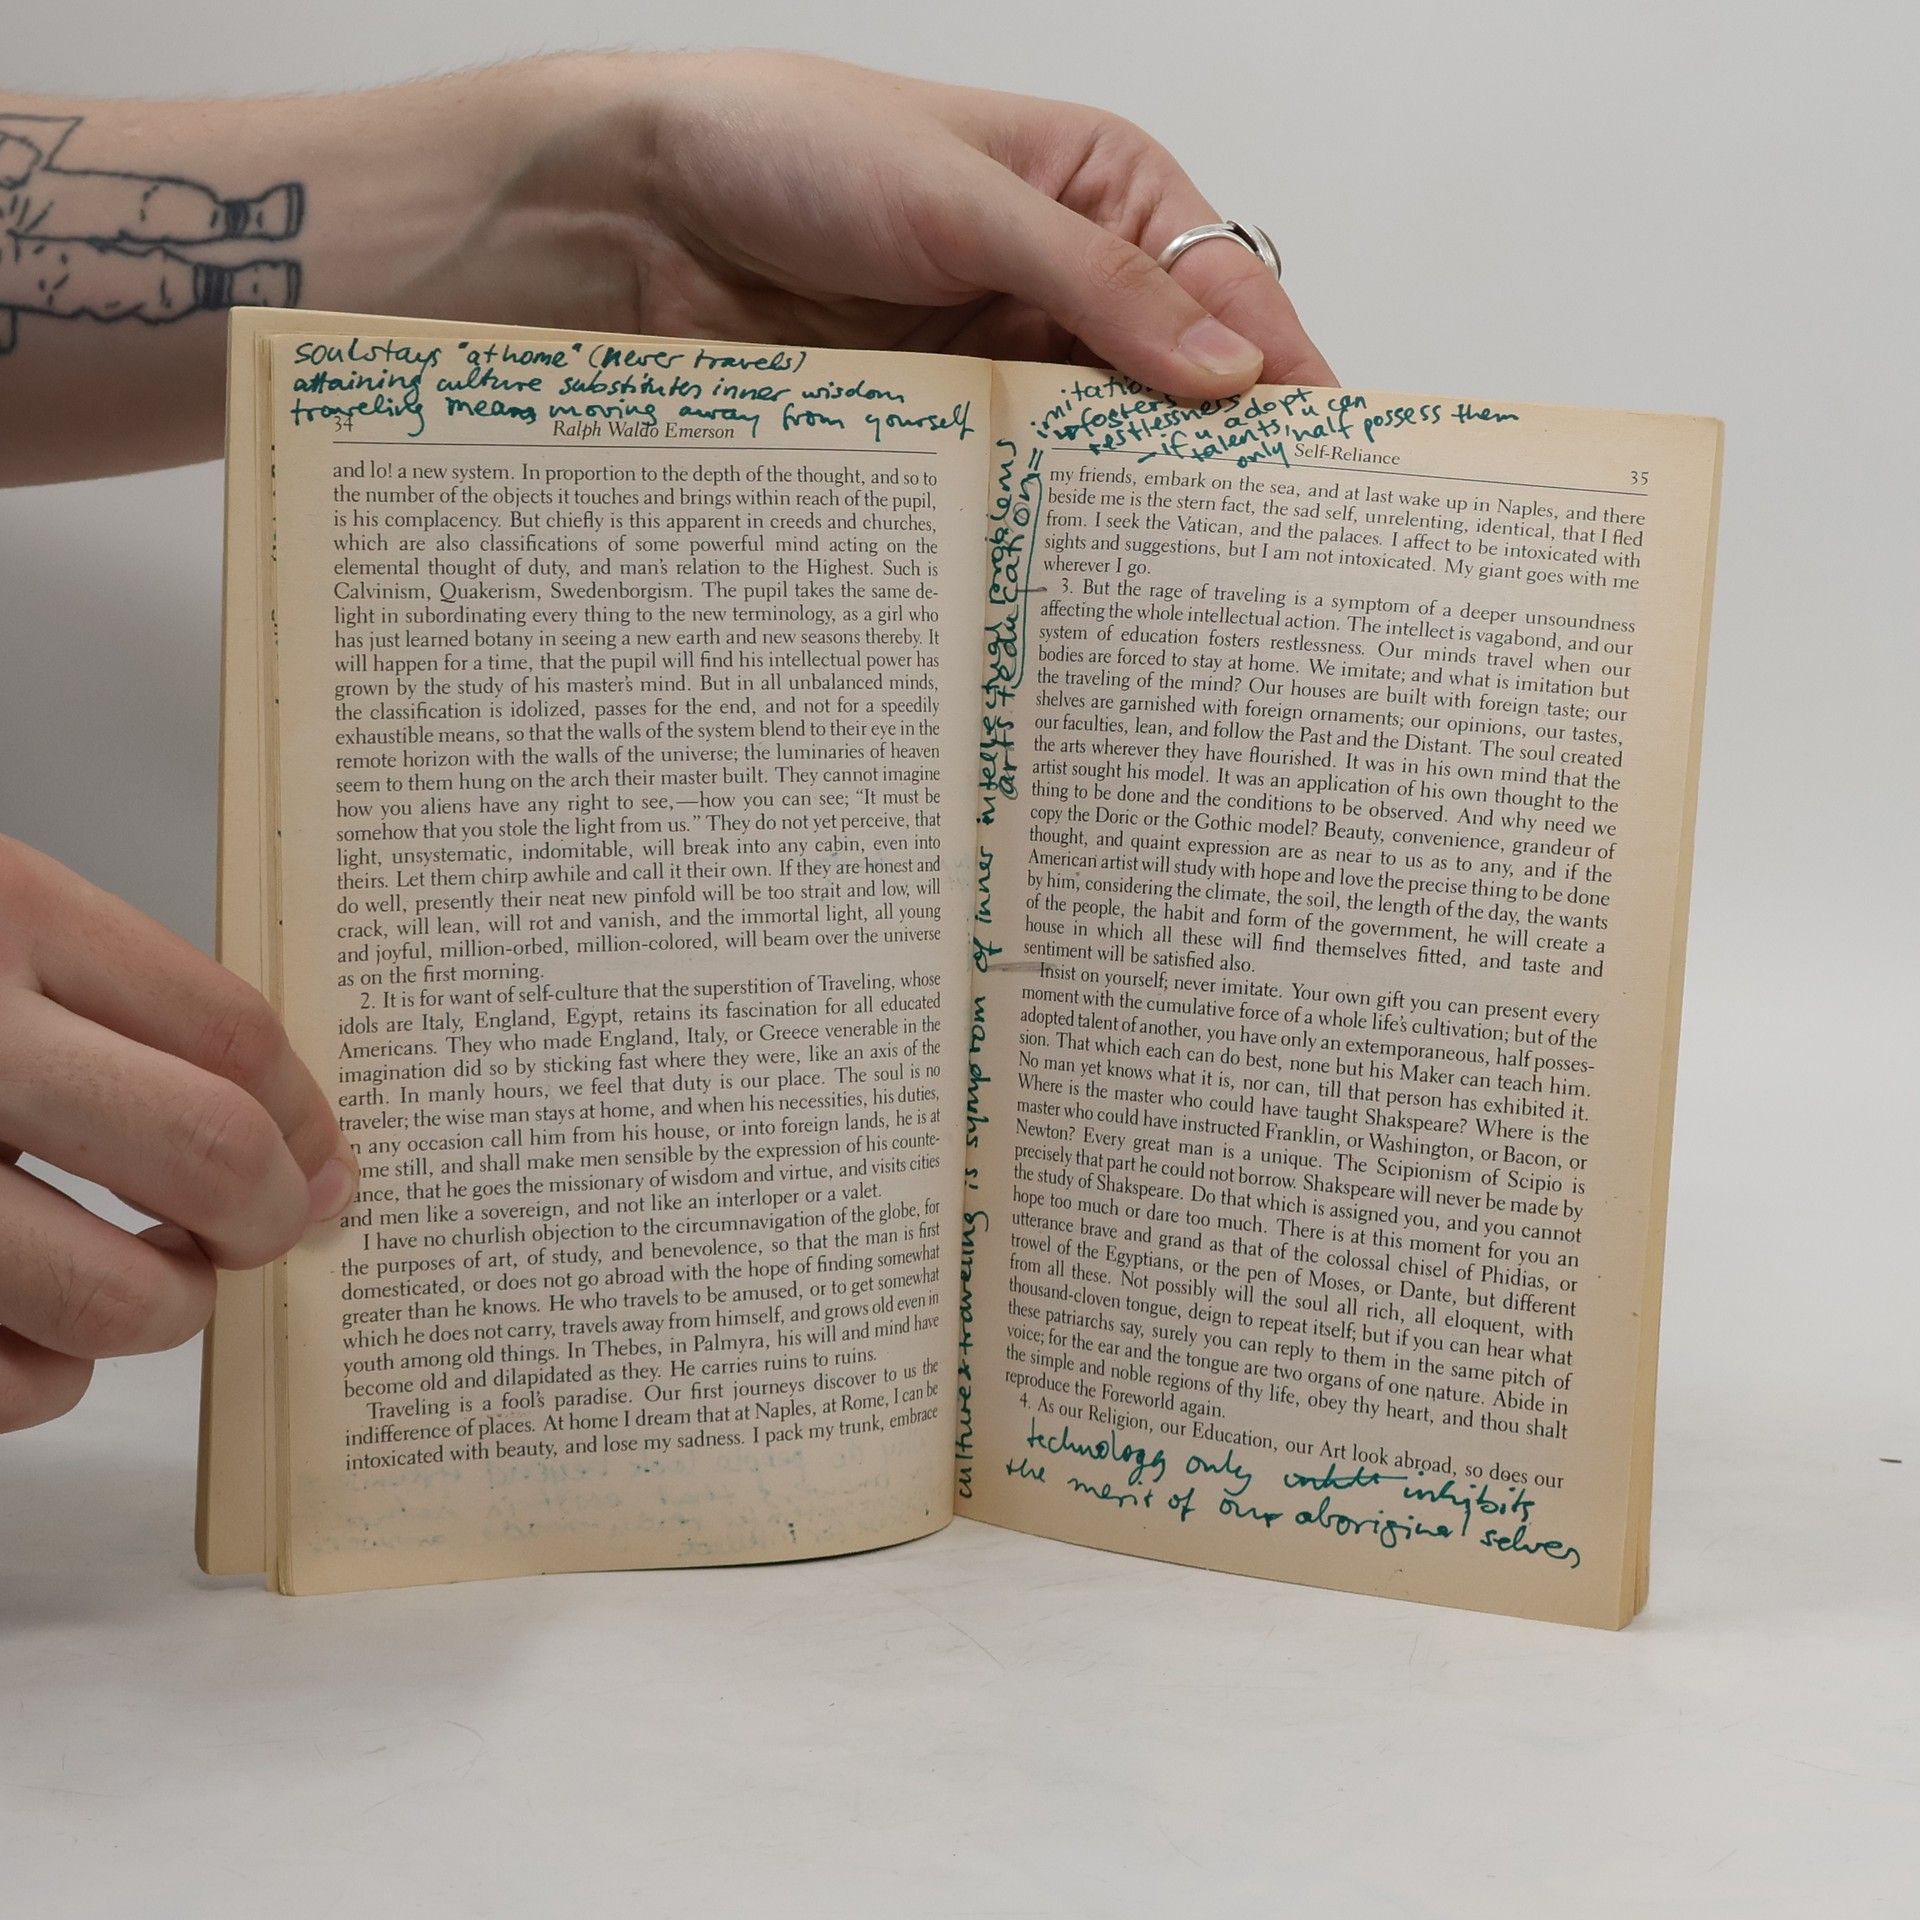 soul stays "at home" (never travels)
attaining culture substitutes inner wisdom
traveling means moving away from yourself
34
Ralph Waldo Emerson
and lo! a new system. In proportion to the depth of the thought, and so to
the number of the objects it touches and brings within reach of the pupil,
is his complacency. But chiefly is this apparent in creeds and churches,
which are also classifications of some powerful mind acting on the
elemental thought of duty, and man's relation to the Highest. Such is
Calvinism, Quakerism, Swedenborgism. The pupil takes the same de-
light in subordinating every thing to the new terminology, as a girl who
has just learned botany in seeing a new earth and new seasons thereby. It
will happen for a time, that the pupil will find his intellectual power has
grown by the study of his master's mind. But in all unbalanced minds,
the classification is idolized, passes for the end, and not for a speedily
exhaustible means, so that the walls of the system blend to their eye in the
remote horizon with the walls of the universe; the luminaries of heaven
seem to them hung on the arch their master built. They cannot imagine
how you aliens have any right to see,—how you can see; “It must be
somehow that you stole the light from us.” They do not yet perceive, that
light, unsystematic, indomitable, will break into any cabin, even into
theirs. Let them chirp awhile and call it their own. If they are honest and
do well, presently their neat new pinfold will be too strait and low, will
crack, will lean, will rot and vanish, and the immortal light, all young
and joyful, million-orbed, million-colored, will beam over the universe
as on the first morning.
2. It is for want of self-culture that the superstition of Traveling, whose
idols are Italy, England, Egypt, retains its fascination for all educated
Americans. They who made England, Italy, or Greece venerable in the
imagination did so by sticking fast where they were, like an axis of the
earth. In manly hours, we feel that duty is our place. The soul is no
traveler; the wise man stays at home, and when his necessities, his duties,
n any occasion call him from his house, or into foreign lands, he is at
ome still, and shall make men sensible by the expression of his counte-
ance, that he goes the missionary of wisdom and virtue, and visits cities
and men like a sovereign, and not like an interloper or a valet.
I have no churlish objection to the circumnavigation of the globe, for
the purposes of art, of study, and benevolence, so that the man is first
domesticated, or does not go abroad with the hope of finding somewhat
greater than he knows. He who travels to be amused, or to get somewhat
which he does not carry, travels away from himself, and grows old even in
youth among old things. In Thebes, in Palmyra, his will and mind have
become old and dilapidated as they. He carries ruins to ruins.
Traveling is a fool's paradise. Our first journeys discover to us the
indifference of places. At home I dream that at Naples, at Rome, I can be
intoxicated with beauty, and lose my sadness. I pack my trunk, embrace
culture & traveling is symptom of inner intellectual problems
arts & education =
imitatio
fosters
restlessness
– if u adopt
talents, u can
only half possess them
Self-Reliance
35
my friends, embark on the sea, and at last wake up in Naples, and there
beside me is the stern fact, the sad self, unrelenting, identical, that I fled
from. I seek the Vatican, and the palaces. I affect to be intoxicated with
sights and suggestions, but I am not intoxicated. My giant goes with me
wherever I go.
3. But the rage of traveling is a symptom of a deeper unsoundness
affecting the whole intellectual action. The intellect is vagabond, and our
system of education fosters restlessness. Our minds travel when our
bodies are forced to stay at home. We imitate; and what is imitation but
the traveling of the mind? Our houses are built with foreign taste; our
shelves are garnished with foreign ornaments; our opinions, our tastes,
our faculties, lean, and follow the Past and the Distant. The soul created
the arts wherever they have flourished. It was in his own mind that the
artist sought his model. It was an application of his own thought to the
thing to be done and the conditions to be observed. And why need we
copy the Doric or the Gothic model? Beauty, convenience, grandeur of
thought, and quaint expression are as near to us as to any, and if the
American artist will study with hope and love the precise thing to be done
by him, considering the climate, the soil, the length of the day, the wants
of the people, the habit and form of the government, he will create a
house in which all these will find themselves fitted, and taste and
sentiment will be satisfied also.
Insist on yourself; never imitate. Your own gift you can present every
moment with the cumulative force of a whole life's cultivation; but of the
adopted talent of another, you have only an extemporaneous, half posses-
sion. That which each can do best, none but his Maker can teach him.
No man yet knows what it is, nor can, till that person has exhibited it.
Where is the master who could have taught Shakspeare? Where is the
master who could have instructed Franklin, or Washington, or Bacon, or
Newton? Every great man is a unique. The Scipionism of Scipio is
precisely that part he could not borrow. Shakspeare will never be made by
the study of Shakspeare. Do that which is assigned you, and you cannot
hope too much or dare too much. There is at this moment for you an
utterance brave and grand as that of the colossal chisel of Phidias, or
trowel of the Egyptians, or the pen of Moses, or Dante, but different
from all these. Not possibly will the soul all rich, all eloquent, with
thousand-cloven tongue, deign to repeat itself; but if you can hear what
these patriarchs say, surely you can reply to them in the same pitch of
voice; for the ear and the tongue are two organs of one nature. Abide in
the simple and noble regions of thy life, obey thy heart, and thou shalt
reproduce the Foreworld again.
4. As our Religion, our Education, our Art look abroad, so does our
technology only inhibits
the merit of our aboriginal selves